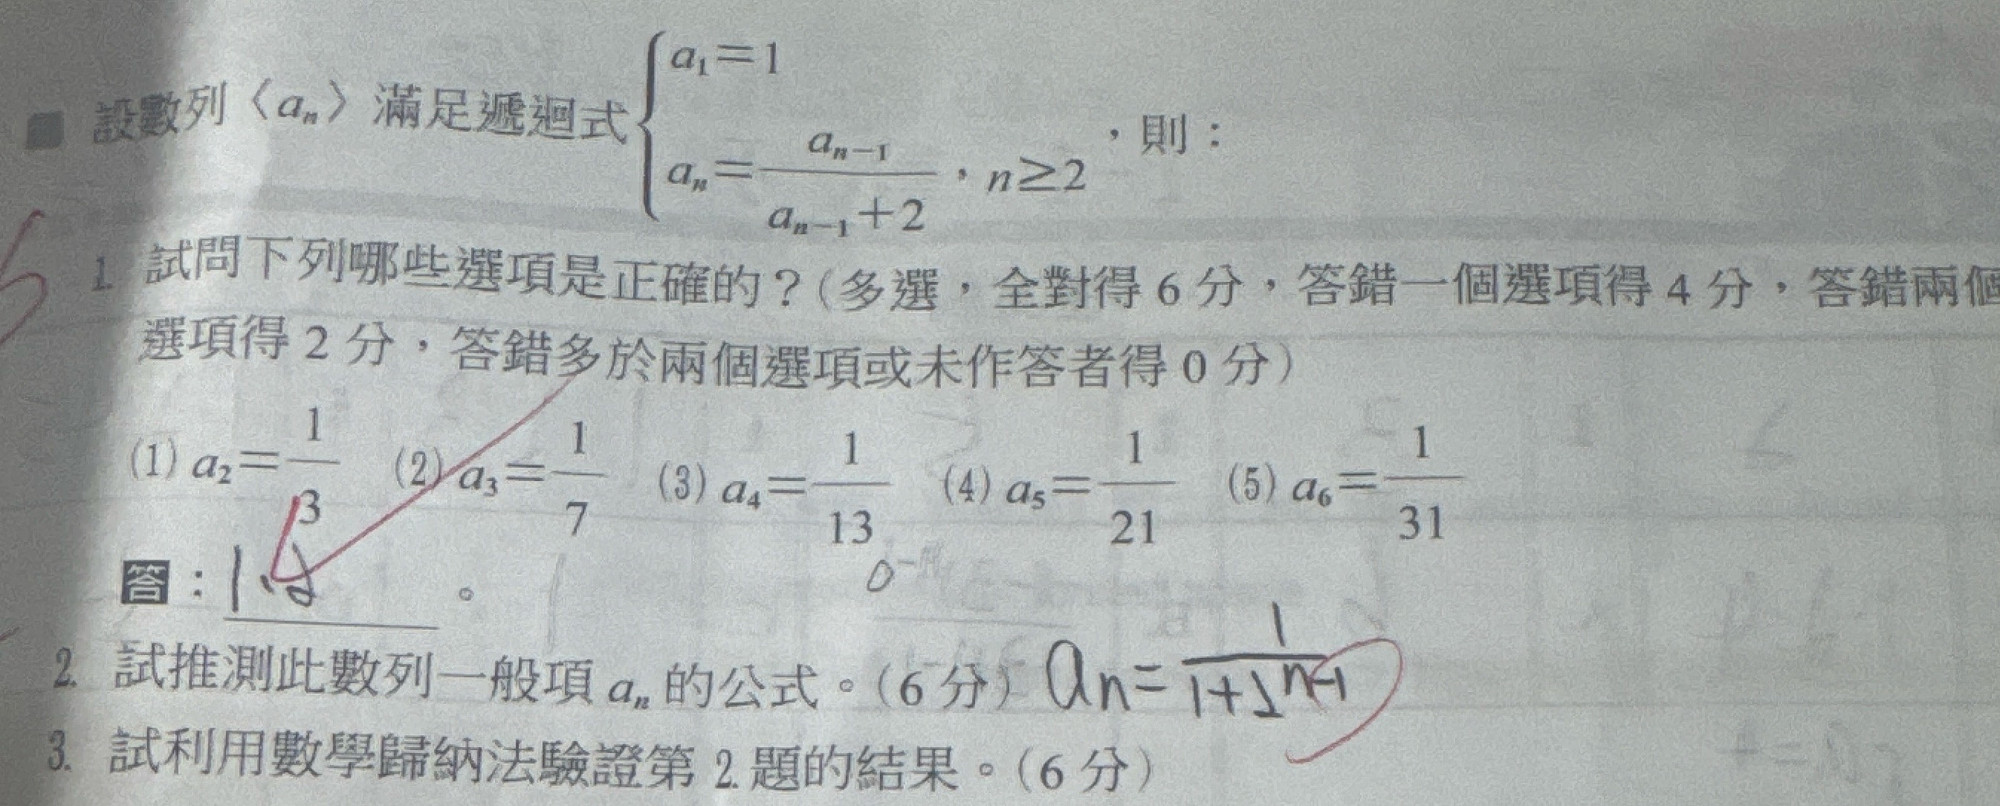 ■ 設數列〈aₙ〉滿足遞迴式{a₁=1
aₙ=aₙ₋₁/(aₙ₋₁+2),n≥2,則:
1. 試問下列哪些選項是正確的?(多選,全對得 6 分,答錯一個選項得 4 分,答錯兩個
選項得 2 分,答錯多於兩個選項或未作答者得 0 分)
(1) a₂=1/3 (2) a₃=1/7 (3) a₄=1/13 (4) a₅=1/21 (5) a₆=1/31
答:1.2。
2. 試推測此數列一般項 aₙ 的公式。(6 分) aₙ=1/(1+2ⁿ⁻¹)
3. 試利用數學歸納法驗證第 2. 題的結果。(6 分)